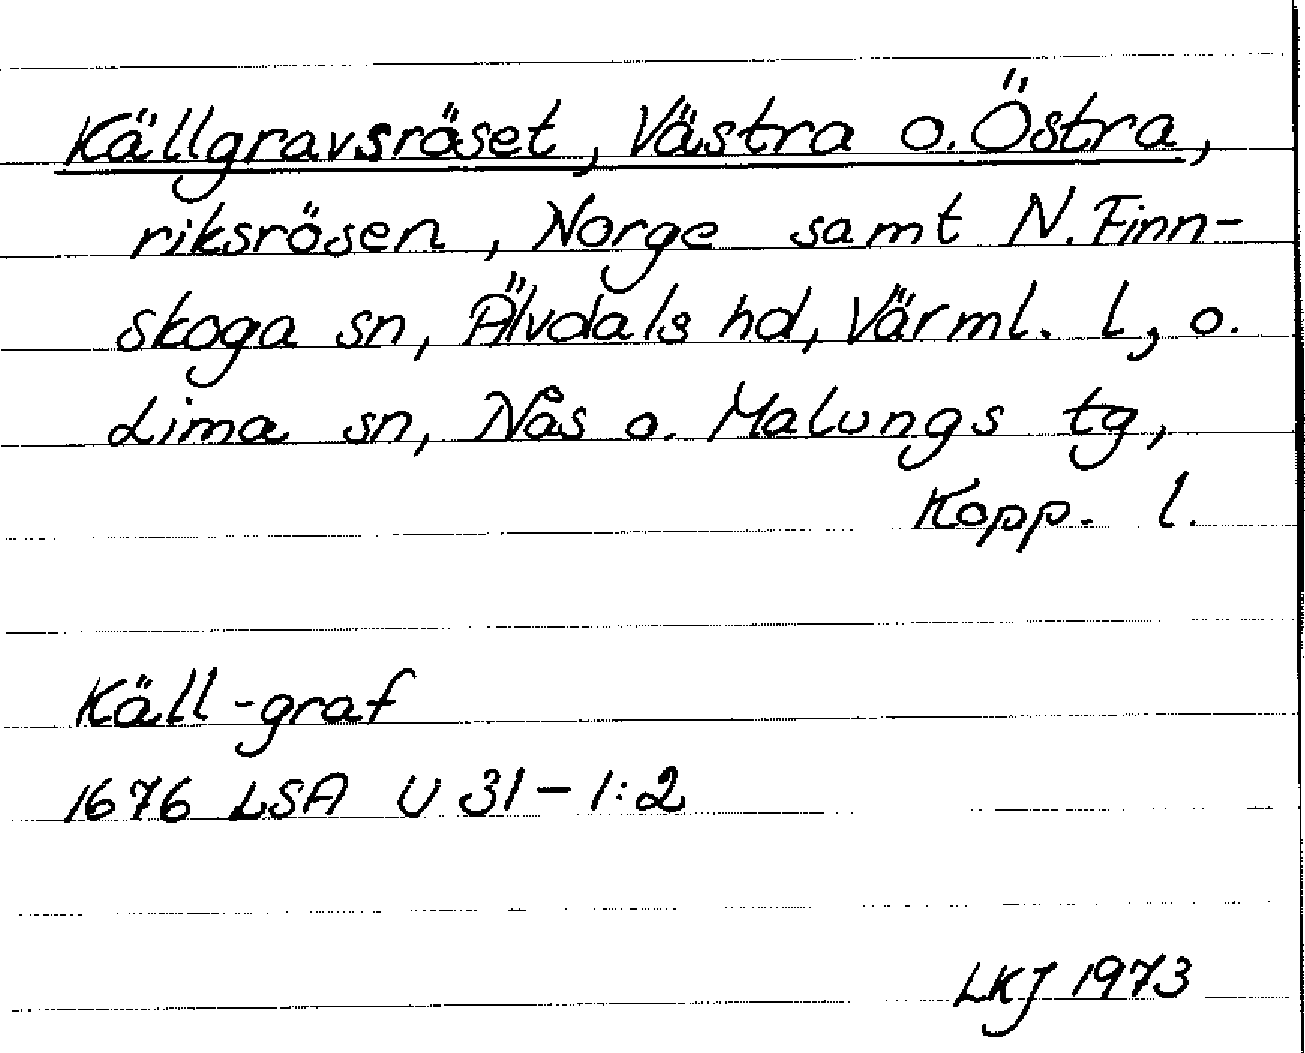 Källgravsröset, Västra o. Östra,
riksrösen, Norge samt N. Finn-
skoga sn, Älvdals hd, Värml. l, o.
Lima sn, Nås o. Malungs tg,
Kopp. l.
Käll-graf
1676 LSA U 31-1:2
LKJ 1973